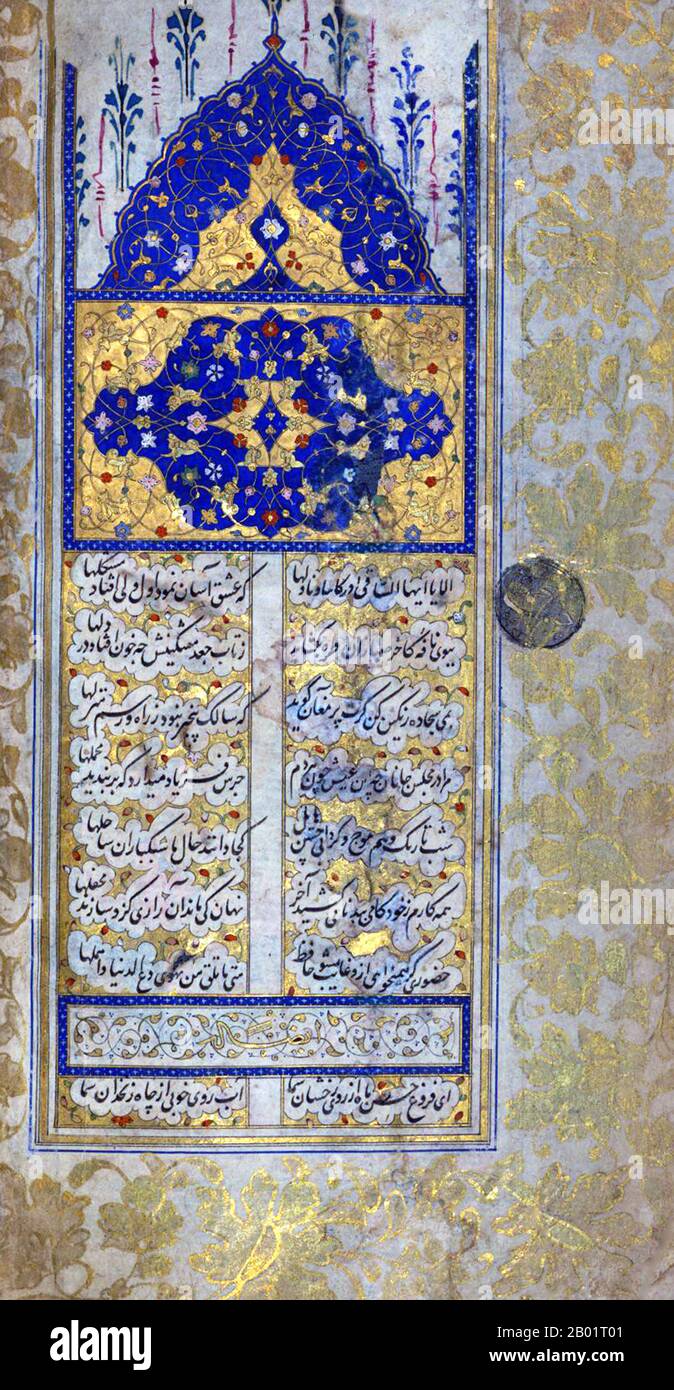 الا یا ایها الساقی ادر کاسا و ناولها که عشق آسان نمود اول ولی افتاد مشکلها
ببوی نافه کاخر صبا زان طره بگشاید ز تاب جعد مشکینش چه خون افتاد در دلها
بمی سجاده رنگین کن گرت پیر مغان گوید که سالک بیخبر نبود ز راه و رسم منزلها
مرا در مجلس جانان چه امن عیش چون هر دم جرس فریاد میدارد که بربندید محملها
شب تاریک و بیم موج و گردابی چنین هایل کجا دانند حال ما سبکباران ساحلها
همه کارم ز خود کامی ببدنامی کشید آخر نهان کی ماند آن رازی کزو سازند محفلها
حضوری گر همیخواهی ازو غایب مشو حافظ متی ما تلق من تهوی دع الدنیا و اهملها
ایضا له
ای فروغ حسن ماه از روی رخشان شما آب روی خوبی از چاه زنخدان شما
alamy
Image ID: 2B01T01
www.alamy.com